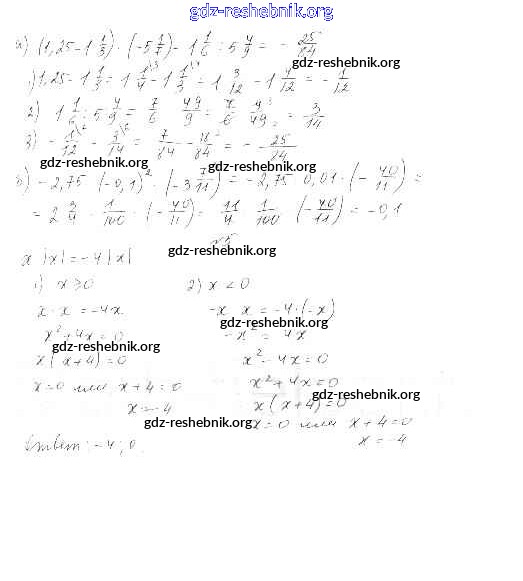 gdz-reshebnik.org
а) (1,25 - 1 1/3) · (-5 1/7) - 1 1/6 : 5 4/9 = - 25/84
gdz-reshebnik.org
1) 1,25 - 1 1/3 = 1 1/4 - 1 1/3 = 1 3/12 - 1 4/12 = - 1/12
2) 1 1/6 : 5 4/9 = 7/6 : 49/9 = 7/6 · 9/49 = 3/14
3) - 1/12 - 3/14 = 7/84 - 18/84 = - 25/84
gdz-reshebnik.org gdz-reshebnik.org
- 2,75 · (-0,1)² · (-3 7/11) = - 2,75 · 0,01 · (- 40/11) =
= 2 3/4 · 1/100 · (- 40/11) = 11/4 · 1/100 · (- 40/11) = -0,1
gdz-reshebnik.org
x |x| = -4|x|
1) x ≥ 0 2) x < 0
x · x = -4x -x · x = -4 · (-x)
gdz-reshebnik.org
x² + 4x = 0 -x² = 4x
gdz-reshebnik.org
x(x+4) = 0 x² - 4x = 0
x = 0 или x + 4 = 0 x² + 4x = 0
gdz-reshebnik.org
x = -4 x(x+4) = 0
gdz-reshebnik.org
x = 0 или x + 4 = 0
x = -4
Ответ: -4; 0.